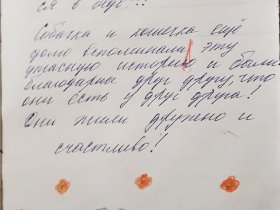 ся в беде!!!
Собачка и кошечка ещё
долго вспоминали эту
ужасную историю и были
благодарны друг другу, что
они есть у друг друга!
Они жили дружно и
счастливо!